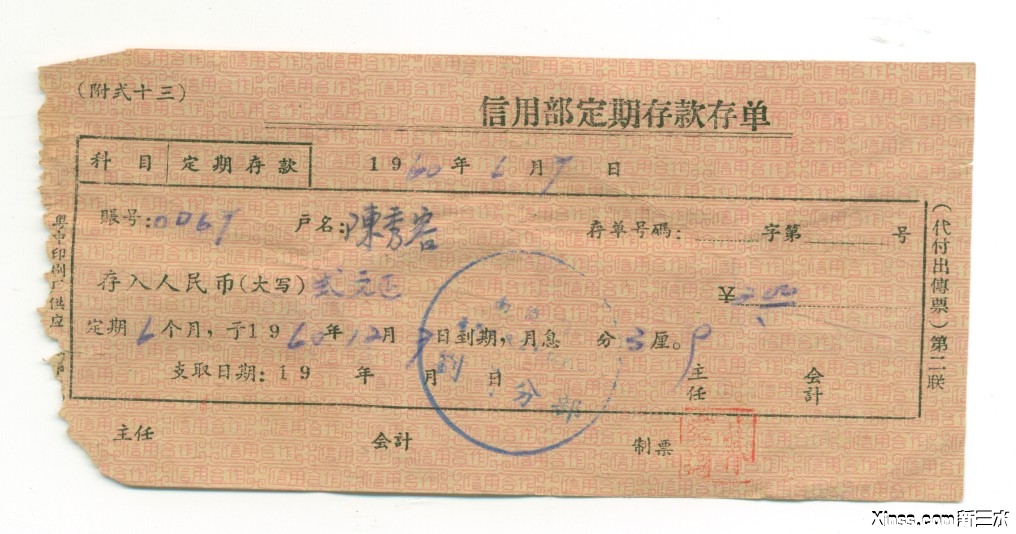 (附式十三)
信用部定期存款存单
科目 定期存款 1960年6月9日
賬号:0069 戶名:陳秀容 存单号碼: 字第 号
存入人民币(大写)弍元正 2.00
定期6个月,于1960年12月9日到期,月息 分3厘。
支取日期:19 年 月 日 主任 会計
主任 会計 制票
(代付出傳票)第二联
粤中印刷厂供应
分部
信用合作
Xinss.com新三水